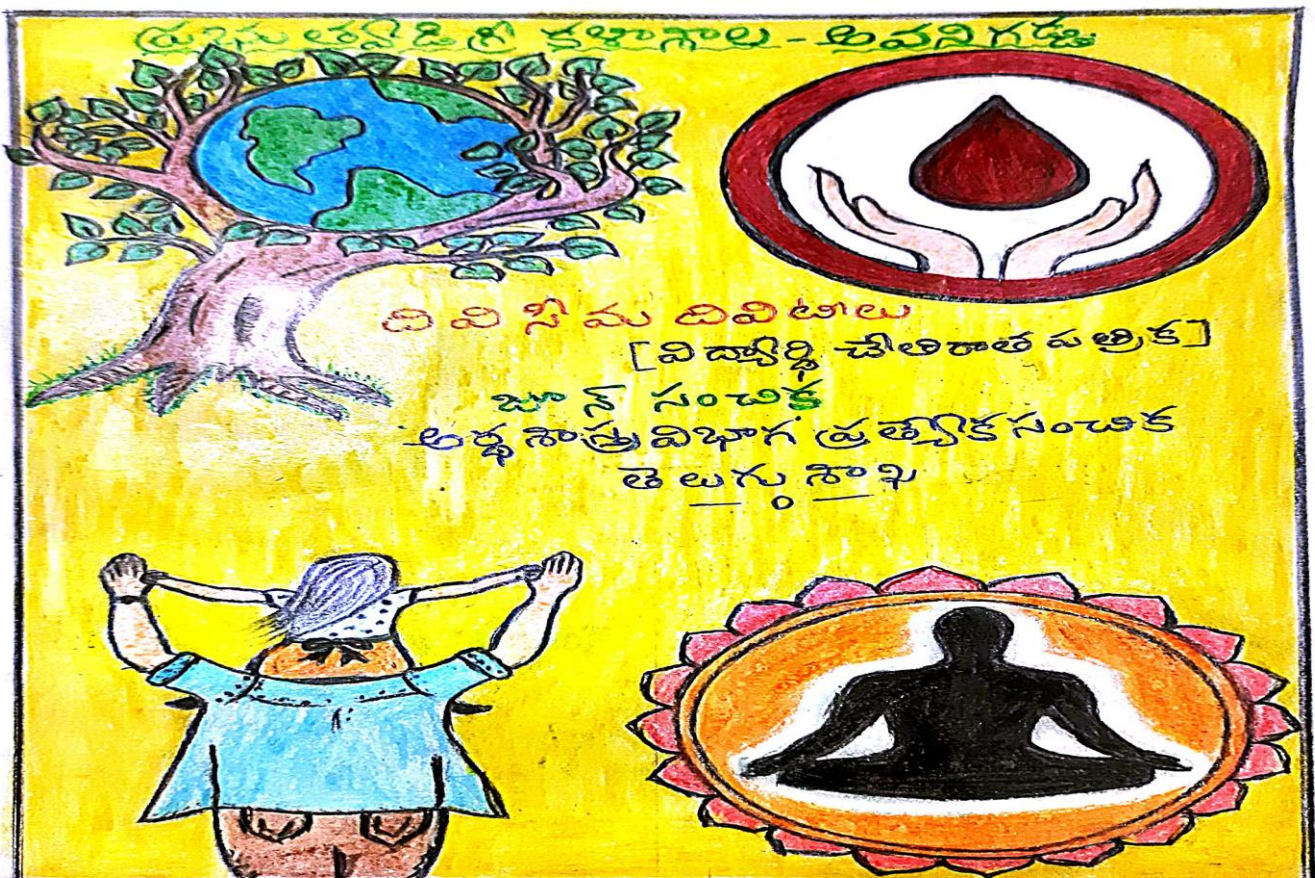 ప్రభుత్వ డిగ్రీ కళాశాల - అవనిగడ్డ
దివిసీమ దివిటీలు
[విద్యార్థి చేతిరాత పత్రిక]
జూన్ సంచిక
అర్థశాస్త్ర విభాగ ప్రత్యేక సంచిక
తెలుగు శాఖ